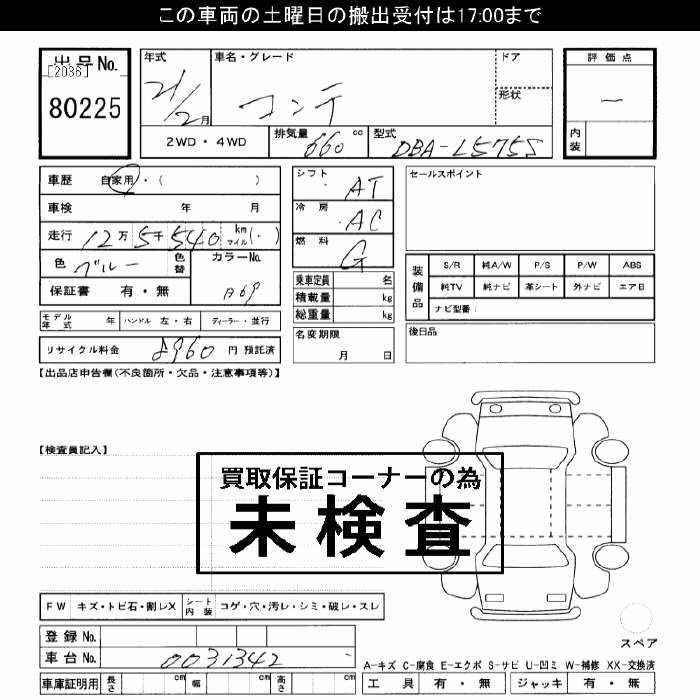 この車両の土曜日の搬出受付は17:00まで
出品No.
[2036]
80225
年式
21/2月
車名・グレード
コンテ
ドア
形状
2WD・4WD
排気量
660 cc
型式
DBA-L575S
評価点
ー
内装
車歴 自家用・( )
車検 年 月
走行 12万5千540 km マイル(・)
色 ブルー 色替
カラーNo.
B69
保証書 有・無
モデル年式 年 ハンドル 左・右 ディーラー・並行
リサイクル料金 8960 円 預託済
シフト AT
冷房 AC
燃料 G
乗車定員 名
積載量 kg
総重量 kg
名変期限
月 日
セールスポイント
装備品
S/R 純A/W P/S P/W ABS
純TV 純ナビ 革シート 外ナビ エアB
ナビ型番:
後日品
【出品店申告欄(不良箇所・欠品・注意事項等)】
【検査員記入】
買取保証コーナーの為
未検査
FW キズ・トビ石・割レX シート内装 コゲ・穴・汚レ・シミ・破レ・スレ
登録No.
車台No. 0031342
車庫証明用 長さ cm 幅 cm 高さ cm
スペア
A-キズ C-腐食 E-エクボ S-サビ U-凹ミ W-補修 XX-交換済
工具 有・無 ジャッキ 有・無